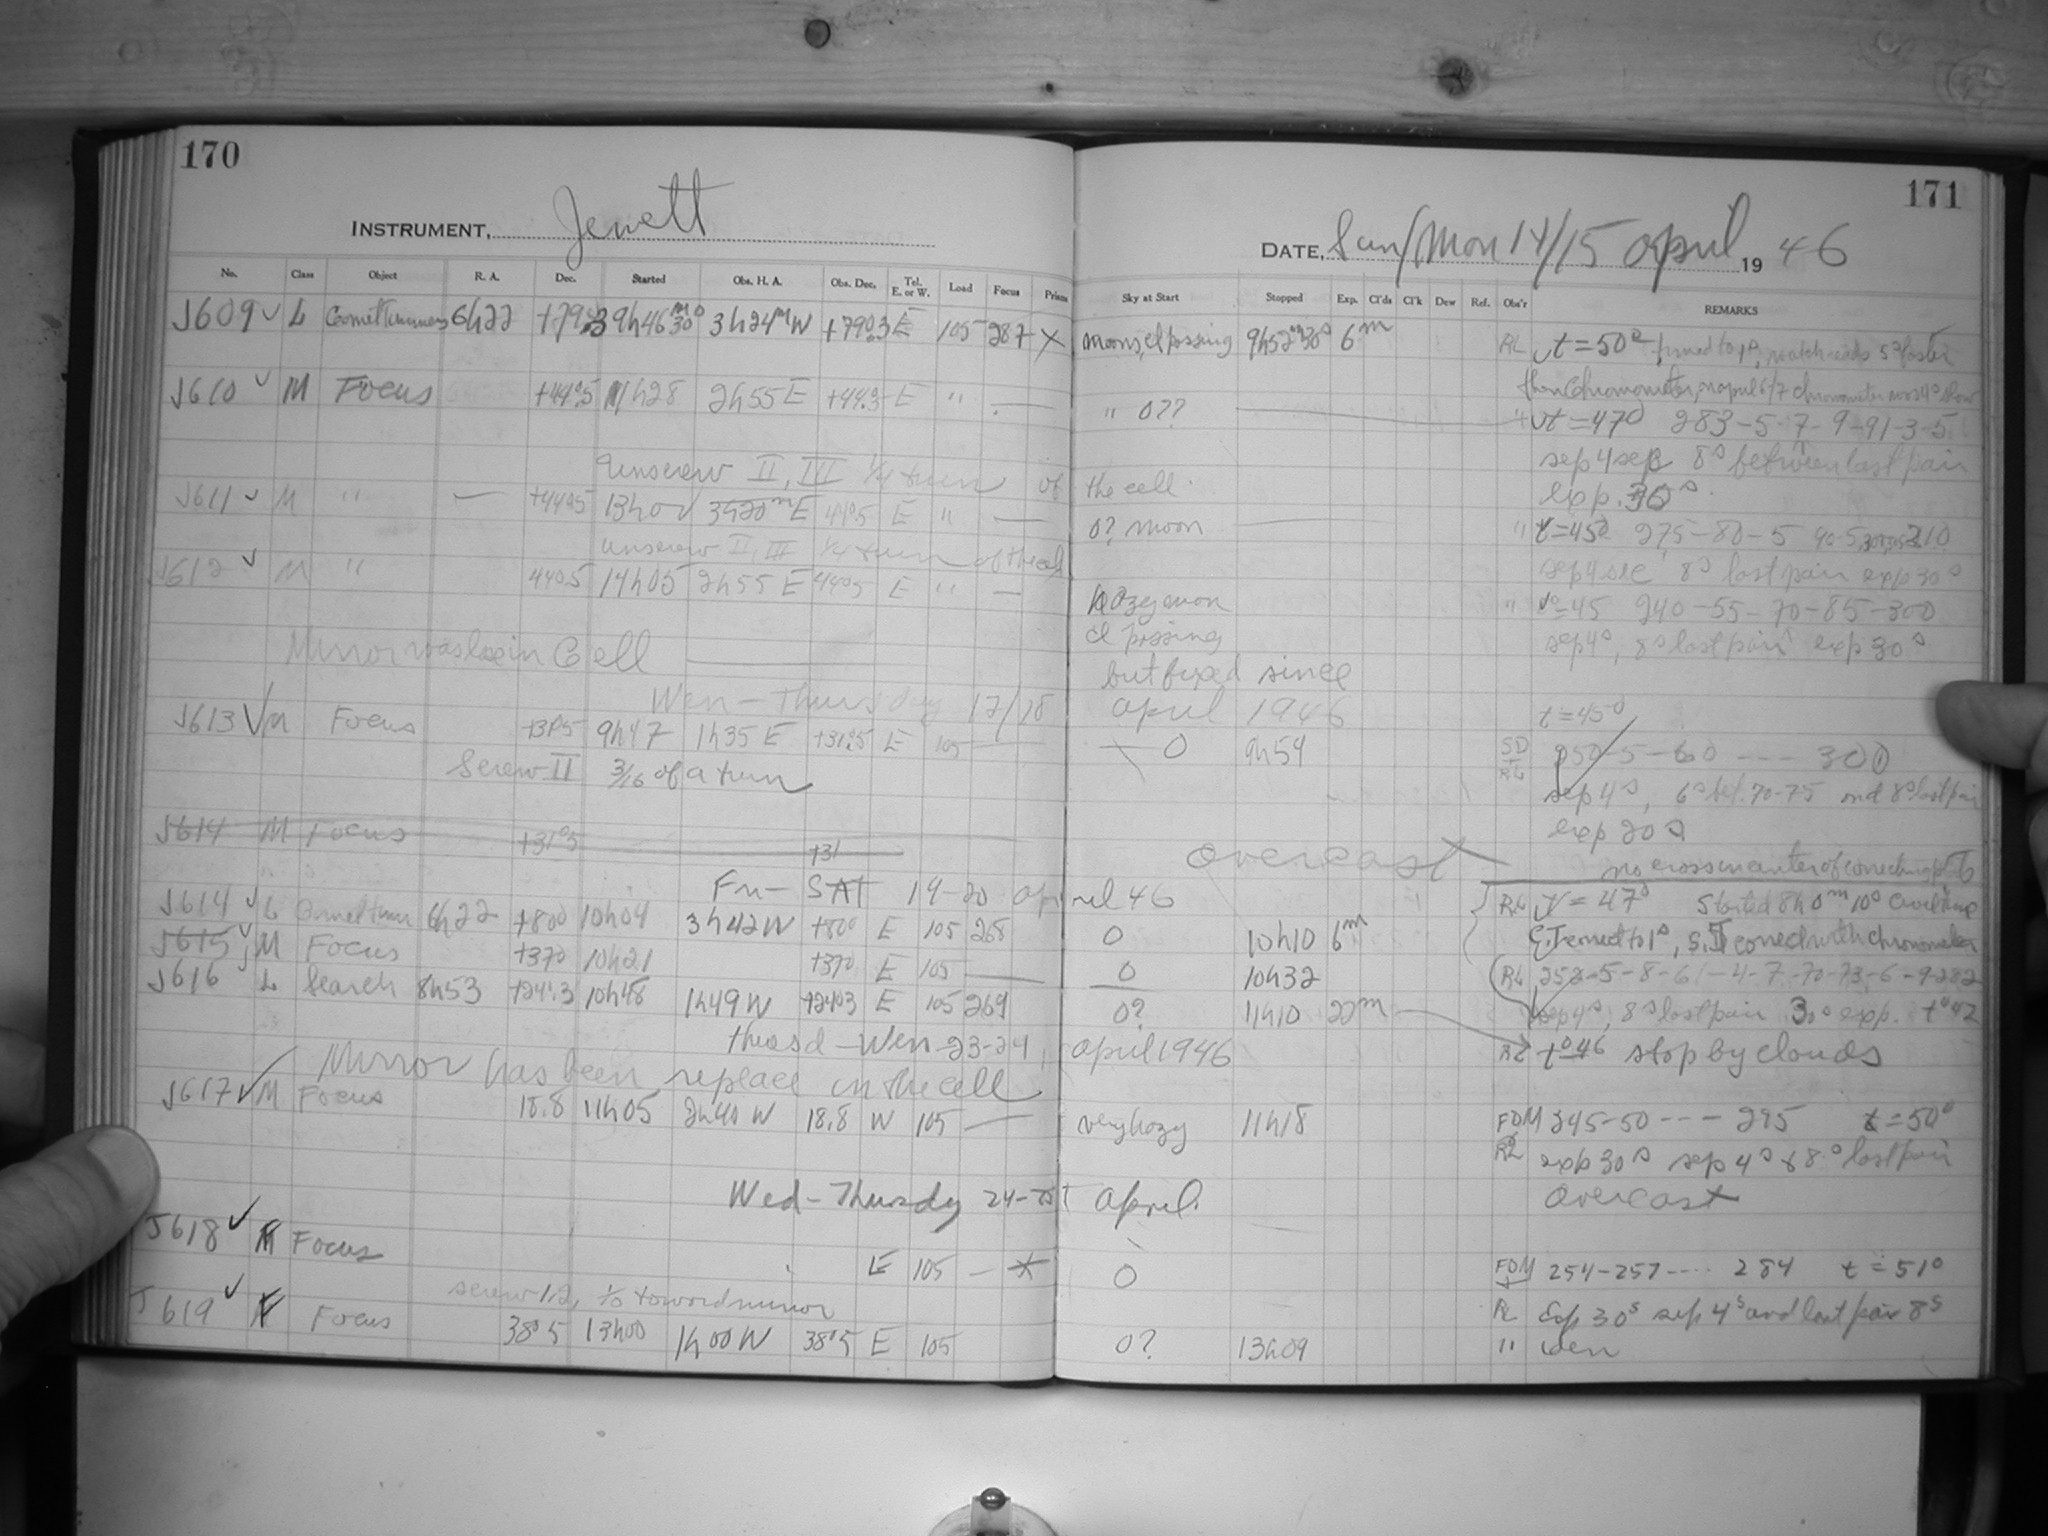 170
171
INSTRUMENT, Jewett
DATE, Sun/Mon 14/15 April 1946
No. Class Object R. A. Dec. Started Obs. H. A. Obs. Dec. Tel. E. or W. Load Focus Prism Sky at Start Stopped Exp. Cl'ds Cl'k Dew Ref. Obs'r REMARKS
J609 ✓ L Comet 6h22 +79.3 9h46m30s 3h24m W +79°.3 E 105 287 X moon, cl passing 9h52m30s 6m RL t=50°
J610 ✓ M Focus +44°.5 11h28 2h55 E +44.3 E " — " 0?? — " t=47° 283-5-7-9-91-3-5
sep 4 sec 8s between last pair
exp. 30s.
Unscrew II, III 1/4 turn of the cell.
J611 ✓ M " — +44°5 13h02 3h20m E 44°5 E " — 0? moon — " t=45°
sep 4 sec 8s last pair exp 30s
unscrew II, III 1/4 turn of the
J612 ✓ M " 44°.5 14h05 2h55 E 44°5 E " — hazy moon " 45 240-55-70-85-300
cl passing sep 4s, 8s last pair exp 30s
Mirror was in Cell — but fixed since
Wen-Thursday 17/18 April 1946
t=45°
J613 ✓ M Focus +31°.5 9h47 1h35 E +31°.5 E 105 — 0 9h54 SD + RL 250-5-60 --- 300
Screw II 3/16 of a turn sep 4s, 6s bet. 70-75 and 8s last pair
exp 20s
J614 M Focus +31°5 +31 overcast
no cross in center of correcting plate
Fri- SAT 19-20 April 46
J614 ✓ L 6h22 +80° 10h04 3h42 W +80° E 105 268 0 10h10 6m RL t=47° Started 8h0m10s
J615 ✓ M Focus +37° 10h21 +37° E 105 — 0 10h32 RL 252-5-8-61-4-7-70-73-6-9-282
sep 4s, 8s last pair 30s exp. t°47
J616 ✓ L Search 8h53 +24°.3 10h48 1h49 W +24°3 E 105 269 0? 11h10 22m RL t°46 stop by clouds
- Wen 23-24, April 1946
Mirror has been replace in the cell
J617 ✓ M Focus 18.8 11h05 2h40 W 18.8 W 105 — very hazy 11h18 FDM 245-50 --- 295 t=50°
RL exp 30s sep 4s & 8s last pair
Wed-Thursdy 24-25 April. overcast
J618 ✓ Focus E 105 — 0 FDM + 254-257---- 284 t=51°
screw 1.2, toward mirror RL Exp 30s sep 4s and last pair 8s
J619 ✓ Focus 38°5 13h00 1h00 W 38°5 E 105 0? 13h09 " iden